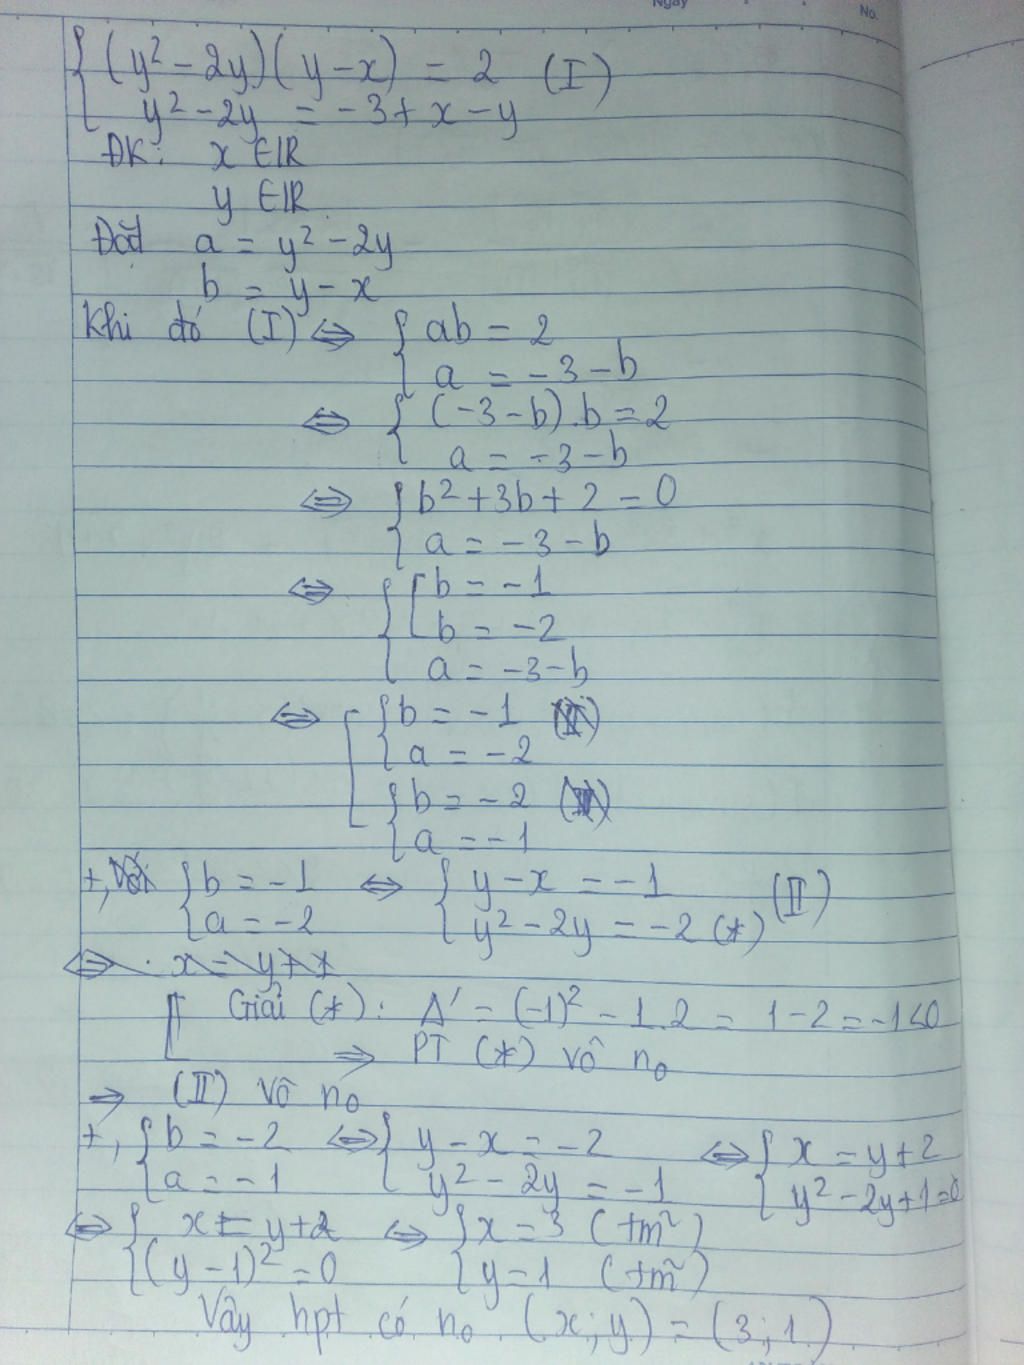 Ngày
No.
{ (y² - 2y)(y - x) = 2 (I)
y² - 2y = -3 + x - y
ĐK: x ∈ IR
y ∈ IR
Đặt a = y² - 2y
b = y - x
Khi đó (I) ⇔ { ab = 2
a = -3 - b
⇔ { (-3 - b).b = 2
a = -3 - b
⇔ { b² + 3b + 2 = 0
a = -3 - b
⇔ { [ b = -1
b = -2
a = -3 - b
⇔ [ { b = -1
a = -2
{ b = -2
a = -1
+, { b = -1 ⇔ { y - x = -1 (II)
a = -2 y² - 2y = -2 (*)
⇔ x = y + 1
[ Giải (*): Δ' = (-1)² - 1.2 = 1 - 2 = -1 < 0
⇒ PT (*) vô n₀
⇒ (II) vô n₀
+, { b = -2 ⇔ { y - x = -2 ⇔ { x = y + 2
a = -1 y² - 2y = -1 y² - 2y + 1 = 0
⇔ { x = y + 2 ⇔ { x = 3 (tm²)
(y - 1)² = 0 y = 1 (tm²)
Vậy hpt có n₀ (x; y) = (3; 1)